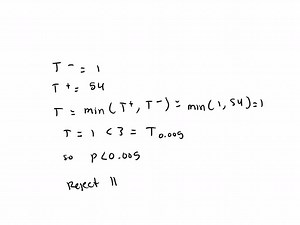 T⁻ = 1
T⁺ = 54
T = min(T⁺, T⁻) = min(1, 54) = 1
T = 1 < 3 = T₀.₀₀₅
so p < 0.005
Reject H